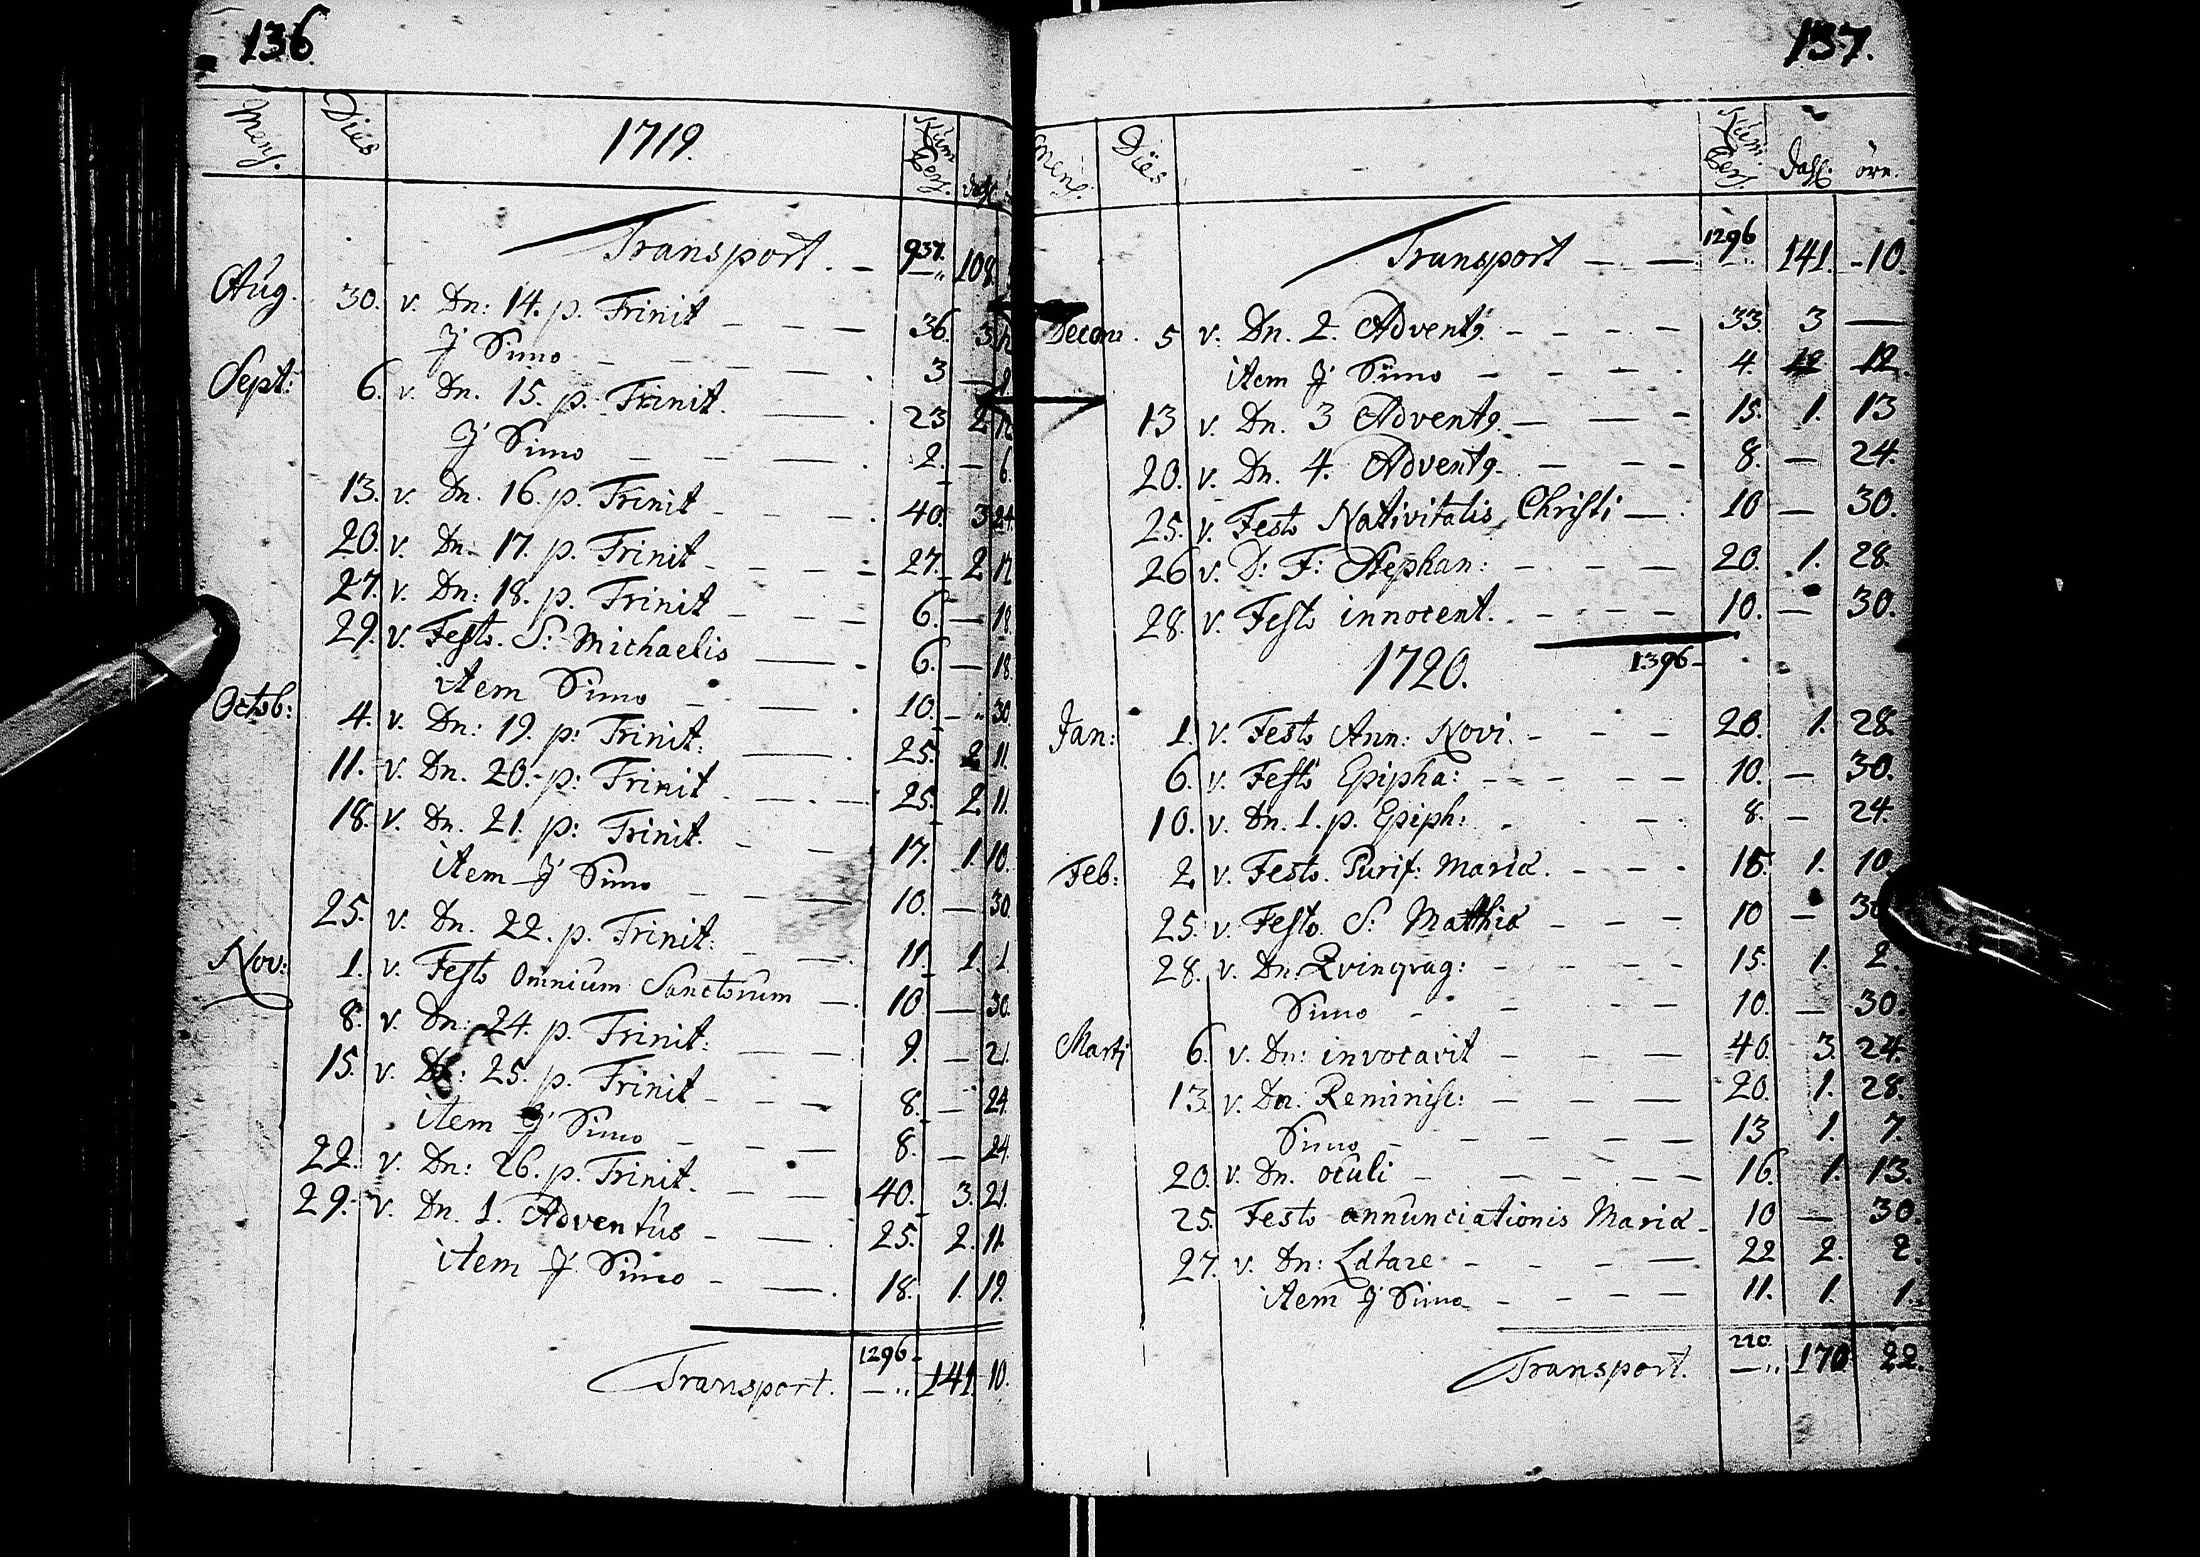 136.
Mens. Dies 1719. Num Pers. dahl.
Transport. 937. 108.
Aug. 30. v. Dn: 14. p. Trinit 36. 3. 12
J Simo 3 — 9.
Sept: 6. v. Dn. 15. p. Trinit. 23 2. 12
J Simo 2. — 6.
13. v. Dn. 16. p. Trinit 40. 3 24.
20. v. Dn. 17. p. Trinit 27. 2 12
27. v. Dn: 18. p. Trinit 6. — 18.
29. v. Festo. S. Michaelis 6. — 18.
item Simo 10. — 30.
Octob: 4. v. Dn: 19. p: Trinit: 25. 2 11.
11. v. Dn. 20. p: Trinit 25. 2. 11.
18. v. Dn. 21. p: Trinit. 17. 1. 10.
item J Simo 10. — 30.
25. v. Dn. 22. p. Trinit: 11. 1. 1.
Nov: 1. v. Festo Omnium Sanctorum 10 — 30.
8. v. Dn: 24. p. Trinit: 9. — 21.
15. v. Dn: 25. p. Trinit 8. — 24.
item J Simo 8. — 24.
22. v. Dn: 26. p. Trinit. 40. 3. 21.
29. v. Dn. 1. Adventus 25. 2. 11.
item J Simo 18. 1. 19.
Transport. 1296 141. 10.
137.
Mens. Dies Num. Pers. dahl: örn.
Transport 1296 141. 10.
Decem. 5 v. Dn. 2. Advent9. 33. 3 —
item J Simo 4. 12 12.
13 v. Dn. 3 Advent9. 15. 1. 13
20. v. Dn. 4. Advent9. 8. — 24.
25. v. Festo Nativitatis Christi 10 — 30.
26 v. D: F: Stephan: 20. 1. 28.
28. v. Festo innocent. 10. — 30.
1720. 1396
Jan: 1. v. Festo Ann: Novi. 20. 1. 28.
6. v. Festo Epipha: 10. — 30.
10. v. Dn. 1. p. Epiph: 8. — 24.
Feb: 2. v. Festo. Purif: Mariæ. 15. 1. 10.
25. v. Festo. S: Matthiæ 10 — 30
28. v. Dn. Qvinqvag: 15. 1. 2.
Simo 10. — 30.
Martj 6. v. Dn: invocavit 40. 3. 24.
13. v. Dn. Reminisc: 20. 1. 28.
Simo 13 1. 7.
20. v. Dn. oculi 16. 1. 13.
25. Festo annunciationis Mariæ 10 — 30.
27. v. Dn: Lætare 22 2. 2.
item J Simo 11. 1. 1.
Transport. 210. 170 22.